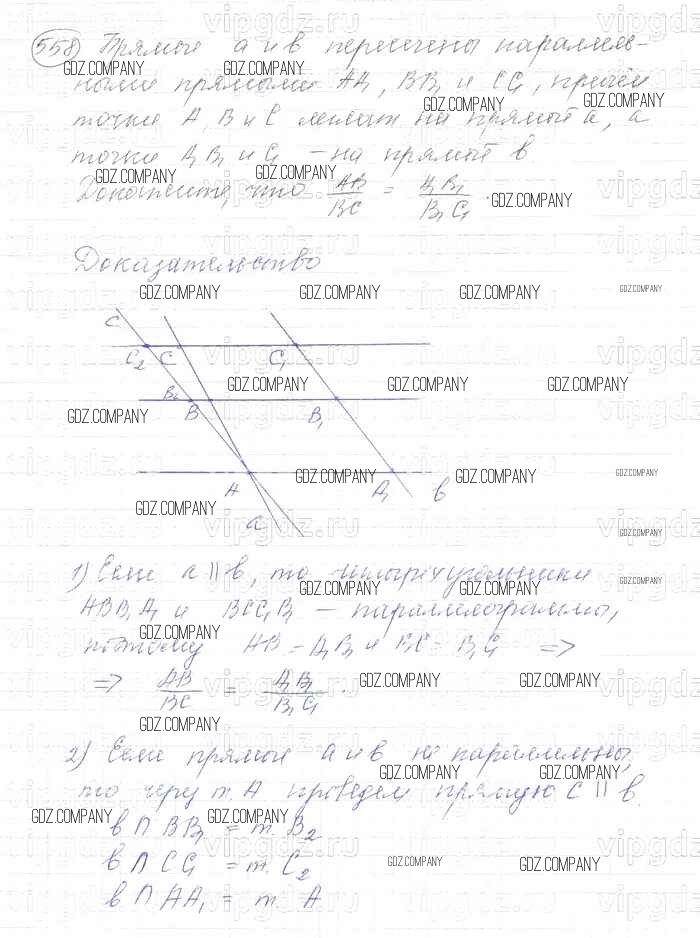 558) Прямые a и в пересечены параллель-
ными прямыми AA₁, BB₁ и CC₁, причём
точки A, B и C лежат на прямой a, а
точки A₁ B₁ и C₁ – на прямой в
Докажите, что AB/BC = A₁B₁/B₁C₁.
Доказательство
C
C₂ C C₁
B₂ B B₁
A A₁ в
a
1) Если a || в, то четырёхугольники
ABB₁A₁ и BCC₁B₁ – параллелограммы,
поэтому AB = A₁B₁ и BC = B₁C₁ =>
=> AB/BC = A₁B₁/B₁C₁.
2) Если прямые a и в не параллельны,
то через т. A проведем прямую C || в.
в ∩ BB₁ = т. B₂
в ∩ CC₁ = т. C₂
в ∩ AA₁ = т. A
GDZ.COMPANY
vipgdz.ru